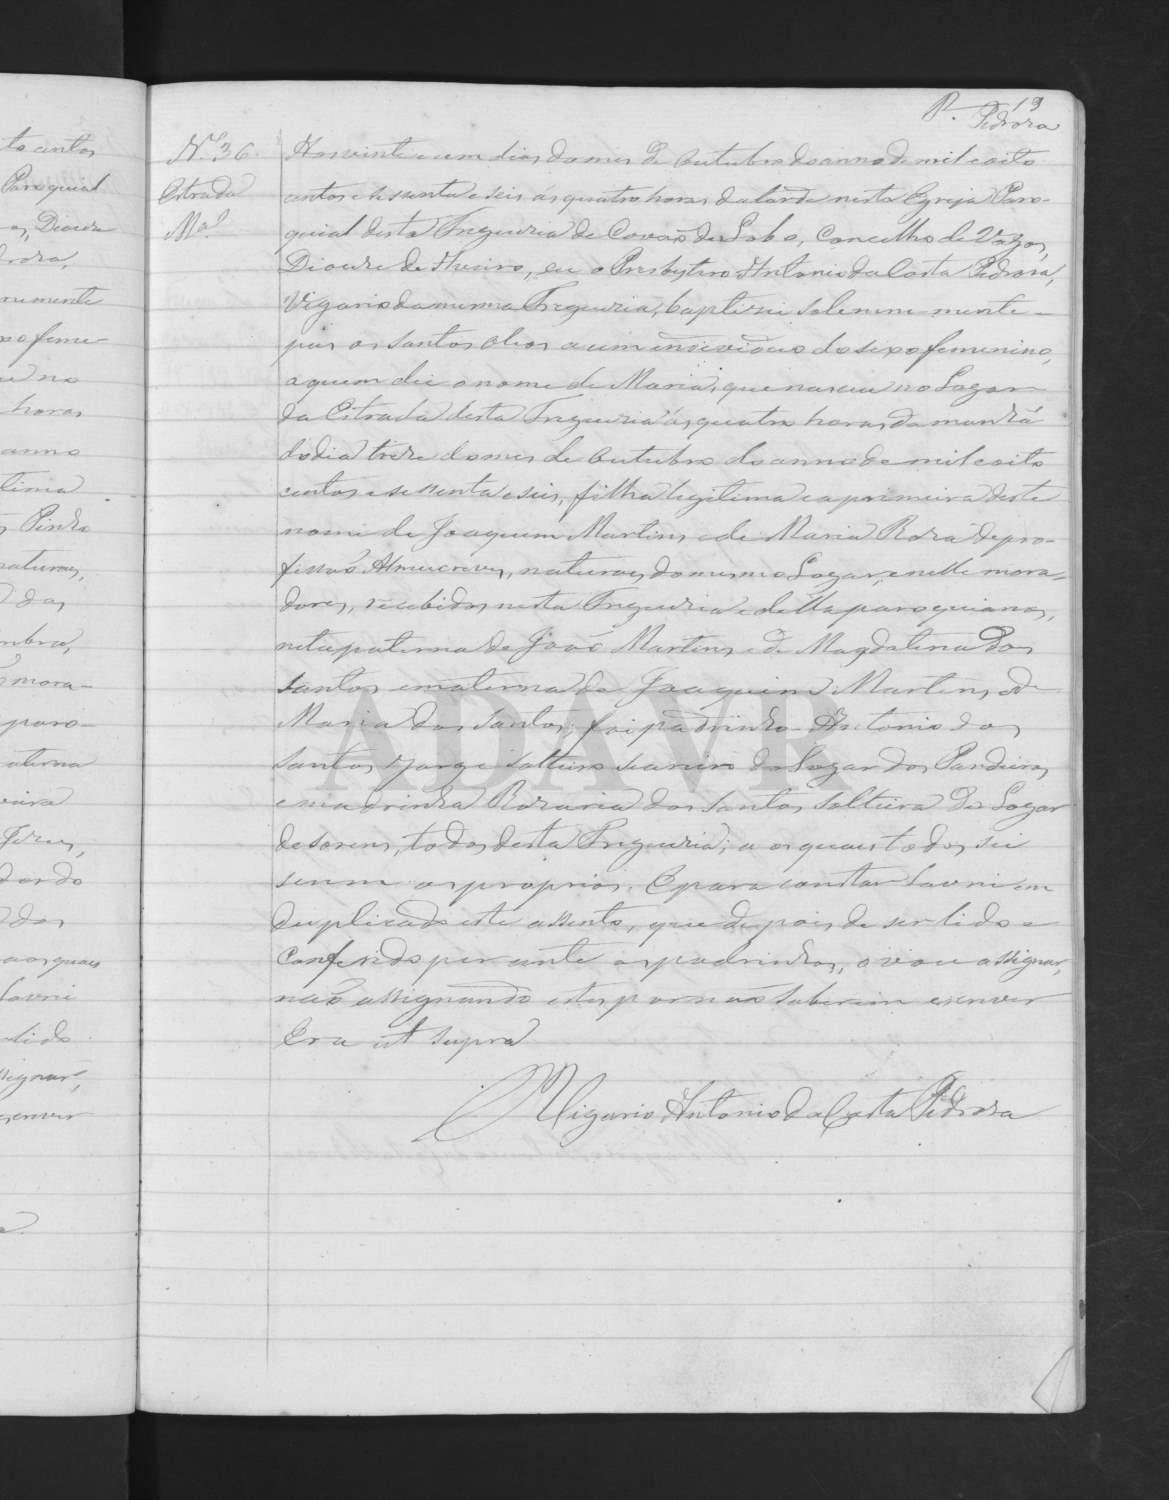 P. 19
Pedroza
N.º 36.
Estrada
Ma.ª
Aos vinte e um dias do mes de Outubro do anno de mil oito
centos e sessenta e seis ás quatro horas da tarde nesta Egreja Paro-
quial desta Freguezia de Covaõ do Lobo, Concelho de Vagos,
Diocese de Aveiro, eu o Presbytero Antonio da Costa Pedroza,
Vigario da mesma Freguezia, baptizei solemne mente
pus os santos oleos a um individuo do sexo femenino,
a quem dei o nome de Maria, que nasceu no Logar
da Estrada desta Freguezia ás quatro horas da manhã
do dia treze do mes de Outubro do anno de mil e oito
centos e sessenta e seis, filha legitima e a primeira deste
nome de Joaquim Martins e de Maria Roza de pro-
fissaõ Almucreves, naturaes do mesmo Logar, e nelle mora-
dores, recebidos nesta Freguezia e della paroquianos,
neta paterna de Joaõ Martins e de Magdalena dos
Santos e materna de Joaquim Martins e de
Maria dos Santos; foi padrinho Antonio dos
Santos Jorge solteiro seareiro do Logar dos
e madrinha Rozaria dos Santos solteira do Logar
de todos desta Freguezia; a os quaes todos sei
serem os proprios. E para constar lavrei em
duplicado este assento, que depois de ser lido e
conferido perante os padrinhos, o vou assignar,
naõ assignando estes por naõ saberem escrever
Era ut supra
O Vigario Antonio da Costa Pedroza
to centos
Paroquial
os, Diocese
droza,
nemente
xo feme
horas
anno
tima
Pinho
naturaes,
dos
mora-
paro-
aterna
dos
a os quaes
lavrei
lido
signar,
escrever
ADAVR